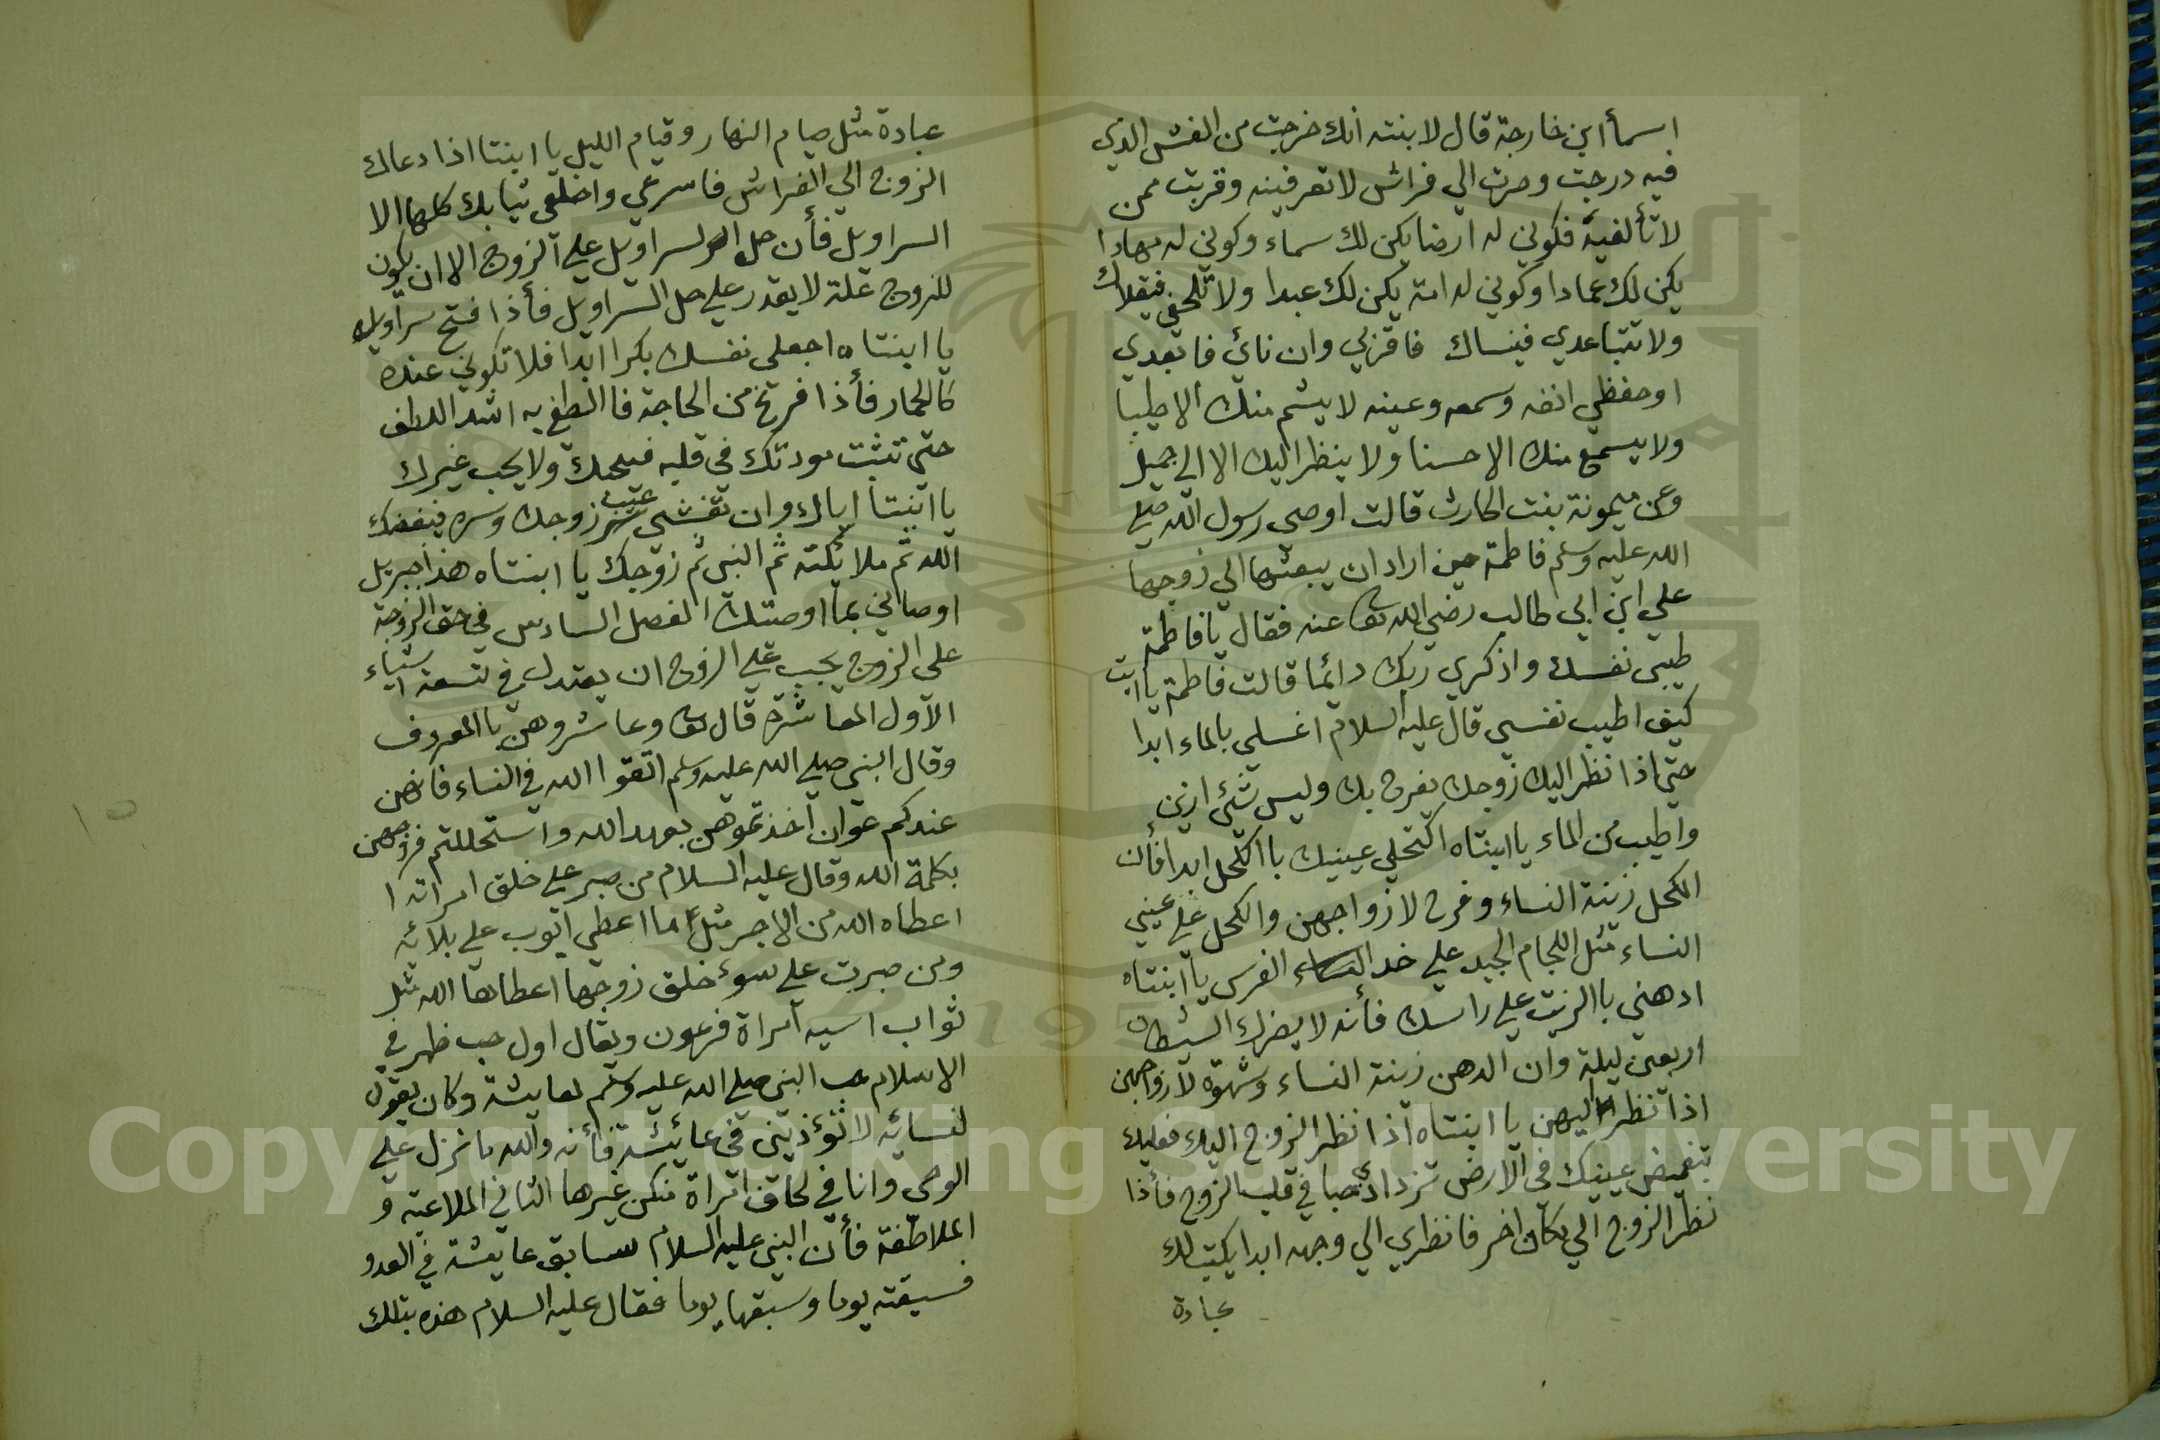 اسمأ ابن خارجة قال لابنته انك خرجت من العش الذي
فيه درجت وصرت الي فراش لا تعرفينه وقربت ممن
لا تألفيه فكوني له ارضا يكن لك سماء وكوني له مهادا
يكن لك عمادا وكوني له امة يكن لك عبدا ولا تلحفي فيقلاك
ولا تتباعدي فينساك فاقربي وان نائ فابعدي
اوحفظي انفه وسمعه وعينه لا يشم منك الا طيبا
ولا يسمع منك الا حسنا ولا ينظر اليك الا الي جميل
وعن ميمونة بنت الحارث قالت اوصي رسول الله صلي
الله عليه وسلم فاطمة حين اراد ان يبعثها الي زوجها
علي ابن ابي طالب رضي الله تعا عنه فقال يا فاطمة
طيبي نفسك واذكري ربك دائما قالت فاطمة يا ابت
كيف اطيب نفسي قال عليه السلام اغسلي بالماء ابدا
حتي اذا نظر اليك زوجك يفرح بك وليس شئ ازين
واطيب من الماء يا ابنتاه اكتحلي عينيك باالكحل ابدا فأن
الكحل زينة النساء وفرح لازواجهن والكحل علي عيني
النساء مثل اللجام الجيد علي خد الفرس يا ابنتاه
ادهني باالزيت علي راسك فأنه لا يضرك الشيطان
اربعين ليلة وان الدهن زينة النساء وشهوة لازواجهن
اذا نظر اليهن يا ابنتاه اذا نظر الزوج اليك فعليك
بتغميض عينيك في الارض تزدادي حبا في قلب الزوج فأذا
نظر الزوج الي مكان اخر فانظري الي وجهه ابدا يكتب لك
عبادة
عبادة مثل صيام النهار وقيام الليل يا ابنتا اذا دعاك
الزوج الي الفراش فاسرعي واخلعي ثيابك كلها الا
السراويل فأن حل السراويل علي الزوج الا ان يكون
للزوج علة لا يقدر علي حل السراويل فأذا فتح سراويلك
يا ابنتاه اجعلي نفسك بكرا ابدا فلا تكوني عنده
كالحمار فأذا فرغ من الحاجة فاالطفي به اشد اللطف
حتي تثبت مودتك في قلبه فيحبك ولا يحب غيرك
يا ابنتا اياك وان تفشي عيب زوجك وسره فيغضبك
الله ثم ملائكته ثم النبي ثم زوجك يا ابنتاه هذا جبريل
اوصاني بما اوصتك الفصل السادس في حق الزوجة
علي الزوج يجب علي الزوج ان يعتدل في تسعة اشياء
الاول المعاشرة قال تعا وعاشروهن باالمعروف
وقال النبي صلي الله عليه وسلم اتقوا الله في النساء فانهن
عندكم عوان اخذتموهن بعهد الله واستحللتم فروجهن
بكلمة الله وقال عليه السلام من صبر علي خلق امراته
اعطاه الله من الاجر مثل ما اعطي ايوب علي بلائه
ومن صبرت علي سوء خلق زوجها اعطاها الله مثل
ثواب اسيه امراة فرعون ويقال اول حب ظهر في
الاسلام حب النبي صلي الله عليه وسلم لعايشة وكان يقول
لنسائه لا تؤذيني في عائشة فأنه والله ما نزل علي
الوحي وانا في لحاف امراة منكن غيرها الثاني الملاعبة و
الملاطفة فأن النبي عليه السلام سابق عايشة في العدو
فسبقته يوما وسبقها يوما فقال عليه السلام هذه بتلك
Copyright © King Saud University